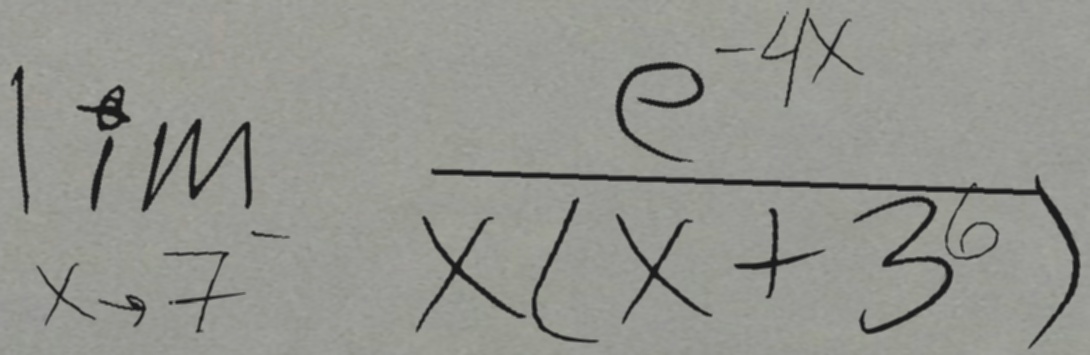 \lim_{x \to 7^-} \frac{e^{-4x}}{x(x+3^6)}